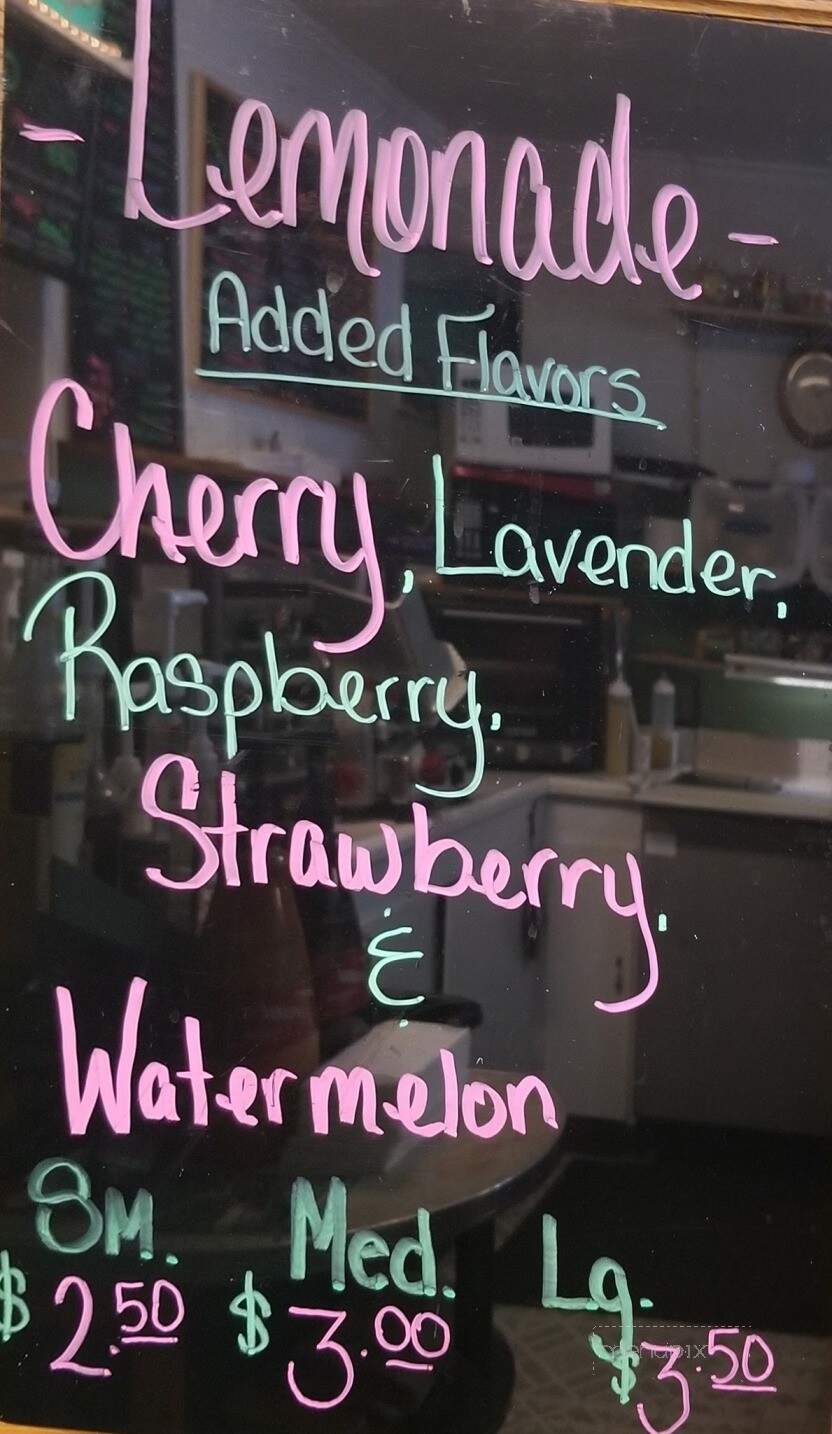 - Lemonade -
Added Flavors
Cherry, Lavender,
Raspberry,
Strawberry,
&
Watermelon
Sm. Med. Lg.
$2.50 $3.00 $3.50
menupix